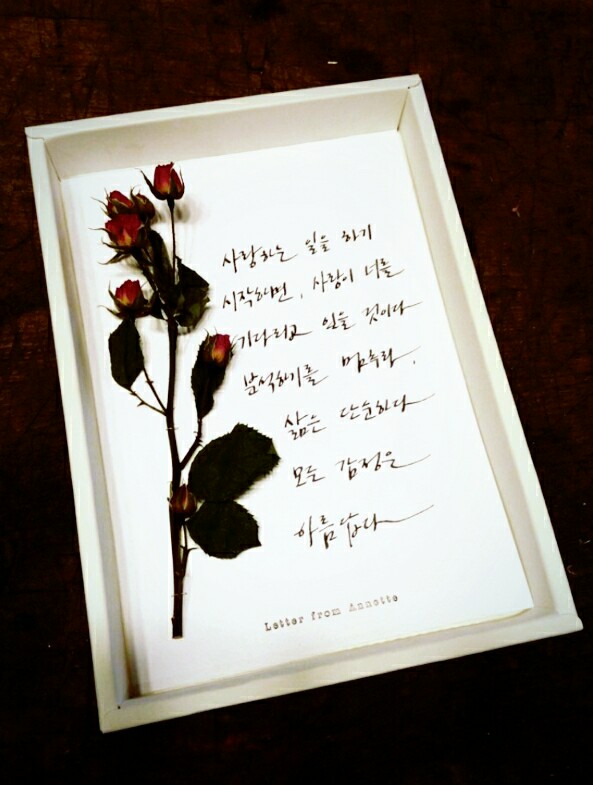 사랑하는 일을 하기
시작하면, 사랑이 너를
기다리고 있을 것이다
분석하기를 멈추라.
삶은 단순하다
모든 감정은
아름답다
Letter from Annette